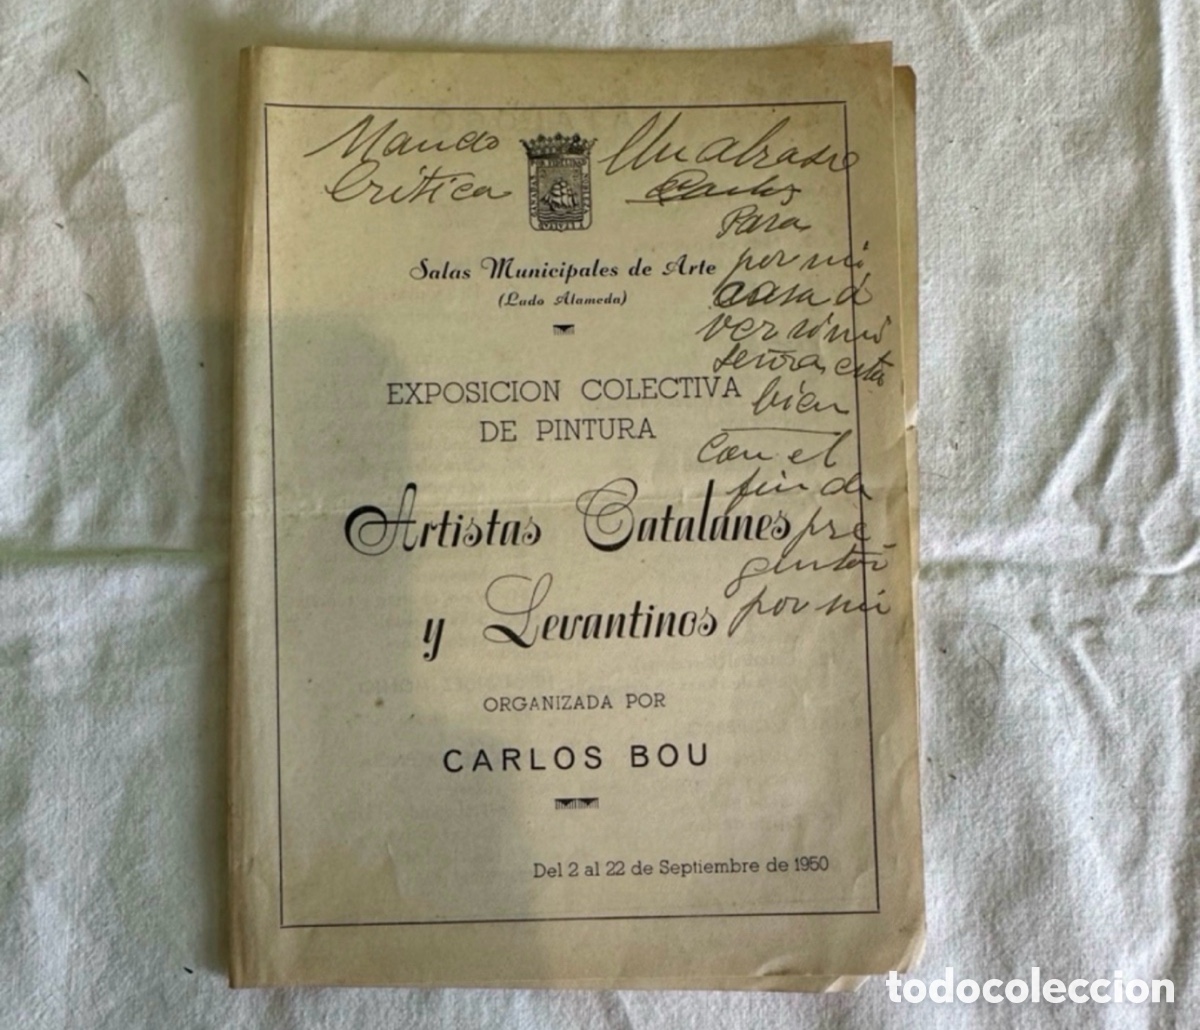 Mando
Critica
Un abraso
Carlos
Para
por mi
casa de
ver si mi
señora esta
bien
Con el
fin de
pre
guntar
por mi
Salas Municipales de Arte
(Lado Alameda)
EXPOSICION COLECTIVA
DE PINTURA
Artistas Catalanes
y Levantinos
ORGANIZADA POR
CARLOS BOU
Del 2 al 22 de Septiembre de 1950
todocoleccion